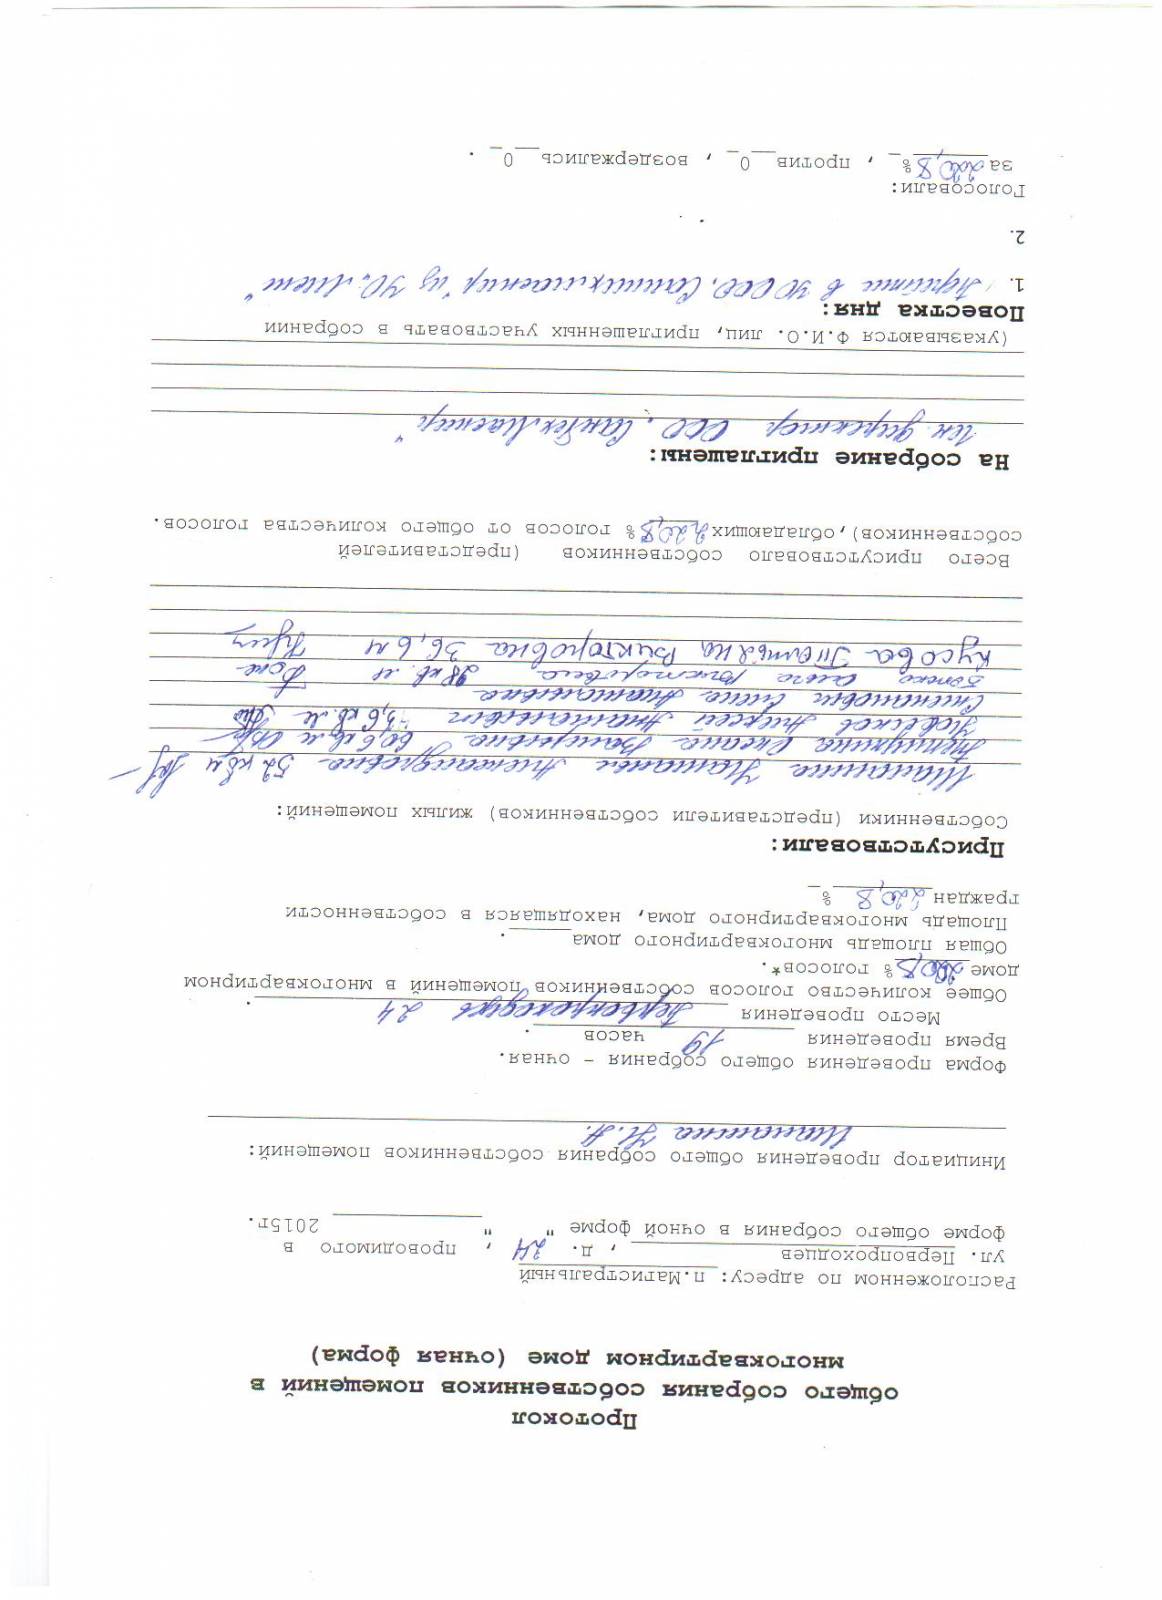 Протокол
общего собрания собственников помещений в
многоквартирном доме (очная форма)
Расположенном по адресу: п.Магистральный
ул. Первопроходцев , д. 24 , проводимого в
форме общего собрания в очной форме " " 2015г.
Инициатор проведения общего собрания собственников помещений:
Н.А.
Форма проведения общего собрания – очная.
Время проведения 19 часов .
Место проведения 24 .
Общее количество голосов собственников помещений в многоквартирном
доме 220,8 % голосов*.
Общая площадь многоквартирного дома .
Площадь многоквартирного дома, находящаяся в собственности
граждан 220,8 %
Присутствовали:
Собственники (представители собственников) жилых помещений:
Александровна 52 кв м
Оксана Валерьевна 60,6 кв.м
Алексей Анатольевич 43,6 кв.м
Анатольевна
Ольга Викторовна 28 кв.м
Кусова Татьяна Викторовна 36,6 м
Всего присутствовало собственников (представителей
собственников), обладающих 220,8 % голосов от общего количества голосов.
На собрание приглашены:
директор ООО "СанТехМастер"
(указываются Ф.И.О. лиц, приглашенных участвовать в собрании
Повестка дня:
1. Перейти в УО ООО "Сантехмастер" из УО
2.
Голосовали:
за 220,8 % , против 0 , воздержались 0 .